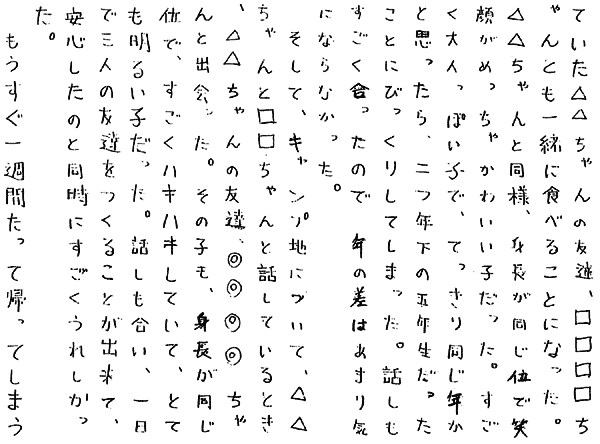 ていた△△ちゃんの友達、□□□□ち
ゃんとも一緒に食べることになった。
△△ちゃんと同様、身長が同じ位で笑
顔がめっちゃかわいい子だった。すご
く大人っぽい子で、てっきり同じ年か
と思ったら、二つ年下の五年生だった
ことにびっくりしてしまった。話しも
すごく合ったので 年の差はあまり気
にならなかった。
そして、キャンプ地について、△△
ちゃんと□□ちゃんと話しているとき
、△△ちゃんの友達、◎◎◎◎ ちゃ
んと出会った。その子も、身長が同じ
位で、すごくハキハキしていて、とて
も明るい子だった。話しも合い、一日
で三人の友達をつくることが出来て、
安心したのと同時にすごくうれしかっ
た。
もうすぐ一週間たって帰ってしまう